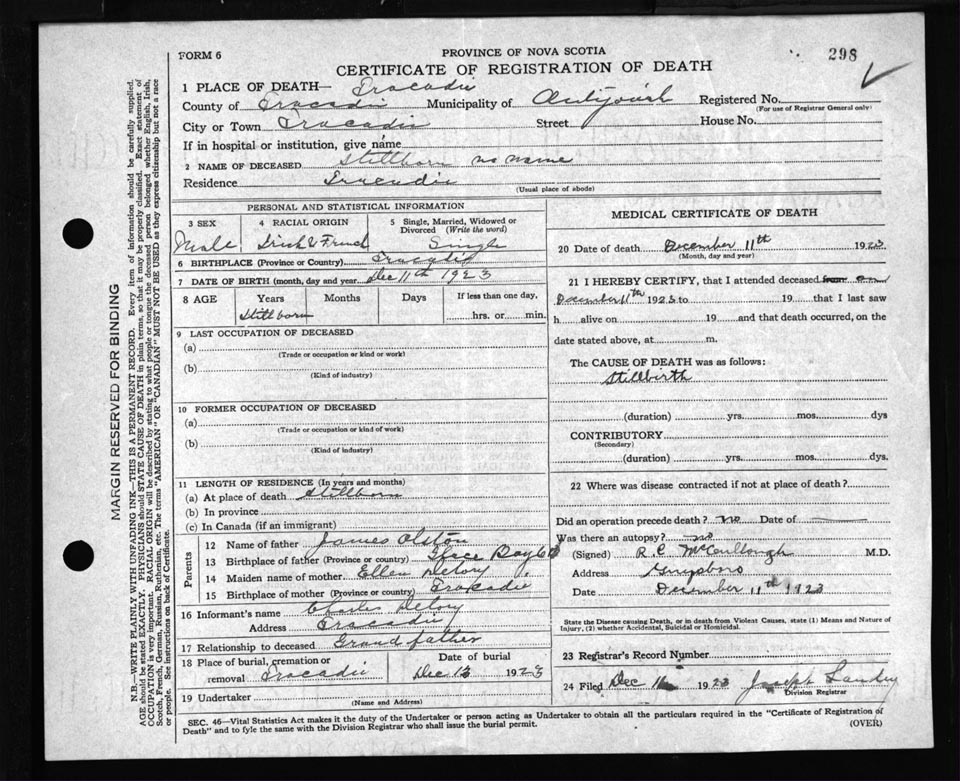 FORM 6
PROVINCE OF NOVA SCOTIA
298
CERTIFICATE OF REGISTRATION OF DEATH
1 PLACE OF DEATH— Tracadie
County of Tracadie Municipality of Antigonish Registered No.
(For use of Registrar General only)
City or Town Tracadie Street House No.
If in hospital or institution, give name
2 NAME OF DECEASED Stillborn no name
Residence Tracadie
(Usual place of abode)
PERSONAL AND STATISTICAL INFORMATION
3 SEX 4 RACIAL ORIGIN 5 Single, Married, Widowed or
Divorced (Write the word)
Male Irish & French Single
6 BIRTHPLACE (Province or Country) Tracadie
7 DATE OF BIRTH (month, day and year) Dec 11th 1923
8 AGE Years Months Days If less than one day,
Stillborn hrs. or min.
9 LAST OCCUPATION OF DECEASED
(a)
(Trade or occupation or kind or work)
(b)
(Kind of industry)
10 FORMER OCCUPATION OF DECEASED
(a)
(Trade or occupation or kind of work)
(b)
(Kind of industry)
11 LENGTH OF RESIDENCE (In years and months)
(a) At place of death Stillborn
(b) In province
(c) In Canada (if an immigrant)
Parents
12 Name of father James Olston
13 Birthplace of father (Province or country)
14 Maiden name of mother Ellen Delory
15 Birthplace of mother (Province or country) Tracadie
16 Informant's name Charles Delory
Address Tracadie
17 Relationship to deceased Grandfather
18 Place of burial, cremation or Date of burial
removal Tracadie Dec 13 1923
19 Undertaker
(Name and Address)
MEDICAL CERTIFICATE OF DEATH
20 Date of death December 11th 1923
(Month, day and year)
21 I HEREBY CERTIFY, that I attended deceased from on
December 11th 1923 to 19 that I last saw
h alive on 19 and that death occurred, on the
date stated above, at m.
The CAUSE OF DEATH was as follows:
Stillbirth
(duration) yrs. mos. dys
CONTRIBUTORY
(Secondary)
(duration) yrs. mos. dys.
22 Where was disease contracted if not at place of death?
Did an operation precede death? no Date of
Was there an autopsy? no
(Signed) R. C. McCullough M.D.
Address Guysboro
Date December 11th 1923
State the Disease causing Death, or in death from Violent Causes, state (1) Means and Nature of
Injury, (2) whether Accidental, Suicidal or Homicidal.
23 Registrar's Record Number
24 Filed Dec 1923 Joseph Landry
Division Registrar
SEC. 46—Vital Statistics Act makes it the duty of the Undertaker or person acting as Undertaker to obtain all the particulars required in the "Certificate of Registration of
Death" and to fyle the same with the Division Registrar who shall issue the burial permit.
(OVER)
MARGIN RESERVED FOR BINDING
N.B.—WRITE PLAINLY WITH UNFADING INK—THIS IS A PERMANENT RECORD. Every item of information should be carefully supplied.
AGE should be stated EXACTLY. PHYSICIANS should STATE CAUSE OF DEATH in plain terms, so that it may be properly classified. Exact statement of
OCCUPATION is very important. RACIAL ORIGIN will be described by stating to what people or tongue the deceased person belonged whether English, Irish,
Scotch, French, German, Russian, Ruthenian, etc. The terms "AMERICAN" OR "CANADIAN" MUST NOT BE USED as they express citizenship but not a race
or people. See instructions on back of Certificate.